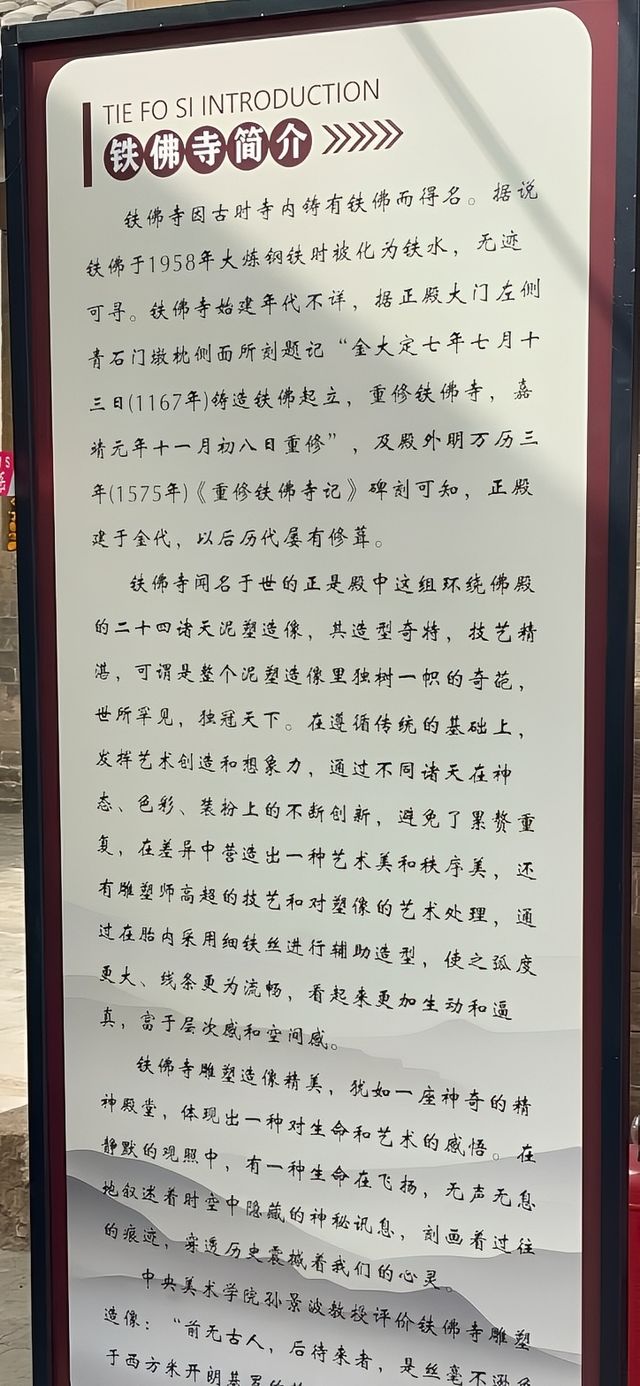 TIE FO SI INTRODUCTION
铁佛寺简介
铁佛寺因古时寺内铸有铁佛而得名。据说
铁佛于1958年大炼钢铁时被化为铁水，无迹
可寻。铁佛寺始建年代不详，据正殿大门左侧
青石门墩枕侧面所刻题记“金大定七年七月十
三日(1167年)铸造铁佛起立，重修铁佛寺，嘉
靖元年十一月初八日重修”，及殿外明万历三
年(1575年)《重修铁佛寺记》碑刻可知，正殿
建于金代，以后历代屡有修葺。
铁佛寺闻名于世的正是殿中这组环绕佛殿
的二十四诸天泥塑造像，其造型奇特，技艺精
湛，可谓是整个泥塑造像里独树一帜的奇葩，
世所罕见，独冠天下。在遵循传统的基础上，
发挥艺术创造和想象力，通过不同诸天在神
态、色彩、装扮上的不断创新，避免了累赘重
复，在差异中营造出一种艺术美和秩序美，还
有雕塑师高超的技艺和对塑像的艺术处理，通
过在胎内采用细铁丝进行辅助造型，使之弧度
更大、线条更为流畅，看起来更加生动和逼
真，富于层次感和空间感。
铁佛寺雕塑造像精美，犹如一座神奇的精
神殿堂，体现出一种对生命和艺术的感悟。在
静默的观照中，有一种生命在飞扬，无声无息
地叙述着时空中隐藏的神秘讯息，刻画着过往
的痕迹，穿透历史震撼着我们的心灵。
中央美术学院孙景波教授评价铁佛寺雕塑
造像：“前无古人，后待来者，是丝毫不逊色
于西方米开朗基罗的